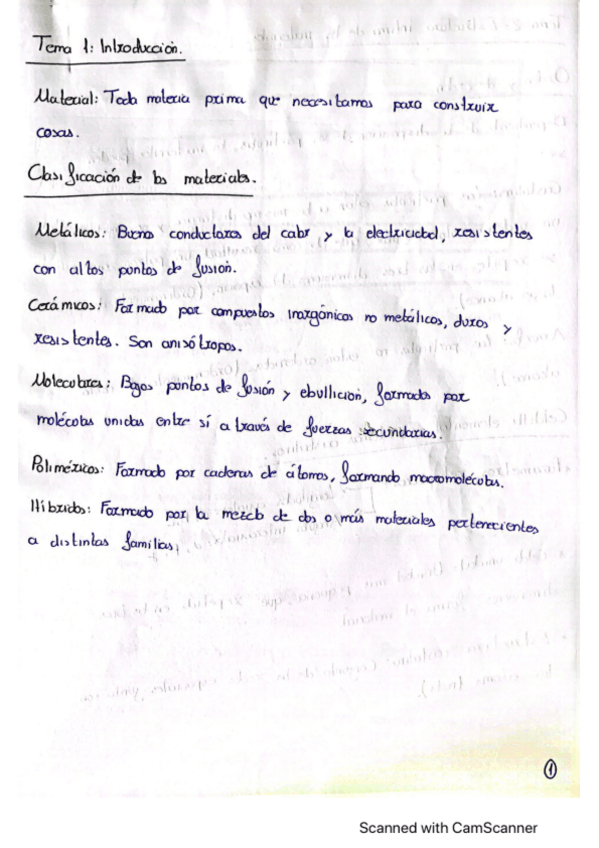 Tema 1: Introducción.
Material: Toda materia prima que necesitamos para construir
cosas.
Clasificación de los materiales.
Metálicos: Buenos conductores del calor y la electricidad, resistentes
con altos puntos de fusión.
Cerámicos: Formado por compuestos inorgánicos no metálicos, duros y
resistentes. Son anisótropos.
Moleculares: Bajos puntos de fusión y ebullición, formados por
moléculas unidas entre sí a través de fuerzas secundarias.
Poliméricos: Formado por cadenas de átomos, formando macromoléculas.
Híbridos: Formado por la mezcla de dos o más materiales pertenecientes
a distintas familias.
1
Scanned with CamScanner